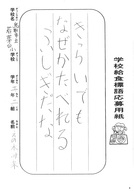 学校給食標語応募用紙
きらいでも
なぜかたべれる
ふしぎだな
学校名
小学校
学年
年
組
名前